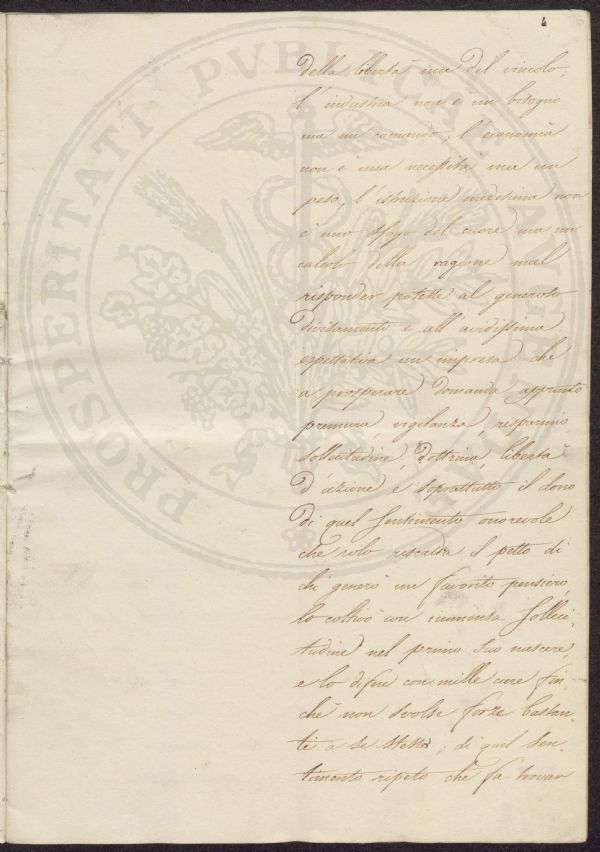 4
della libertà ma del vincolo,
l'industria non è un bisogno
ma un comando, l'economia
non è una necessità ma un
peso, l'istruzione medesima non
è uno sfogo del cuore ma un
calcolo della ragione mal
risponder potette al generoso
divisamento e all'avidissima
espettativa un impresa che
a prosperare domanda appunto
premura, vigilanza, risparmio
sollecitudine, dottrina, libertà
d'azione e soprattutto il dono
di quel sentimento onorevole
che solo riscalda il petto di
chi generò un favorito pensiero,
lo coltivò con immensa solleci-
tudine nel primo suo nascere,
e lo difese con mille cure fin
chè non svolse forze bastan-
ti a se stesso; di quel sen-
timento ripeto che fa trovar
PROSPERITATI PVBLICAE AVGENDAE